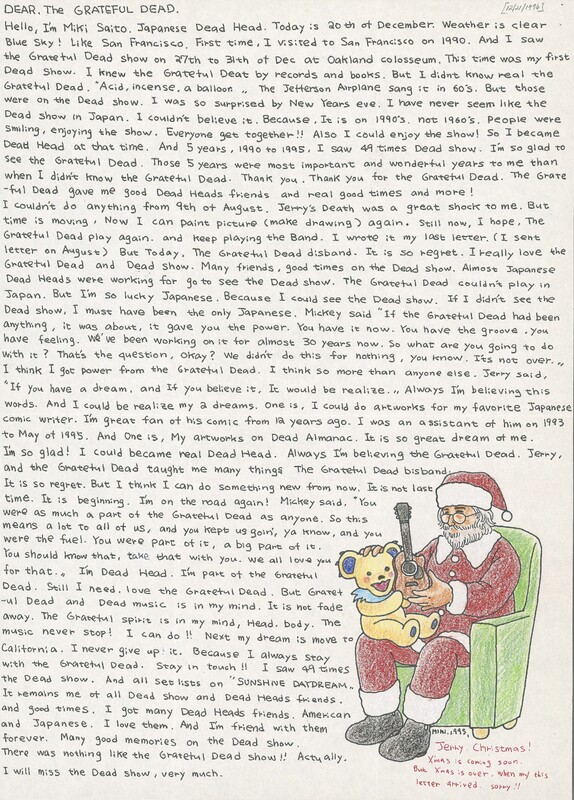 DEAR. THE GRATEFUL DEAD.
[12/21/1996]
Hello, I'm Miki Saito. Japanese Dead Head. Today is 20th of December. Weather is clear
Blue Sky! Like San Francisco. First time, I visited to San Francisco on 1990. And I saw
the Grateful Dead show on 27th to 31th of Dec at Oakland colosseum. This time was my first
Dead Show. I knew the Grateful Deat by records and books. But I didnt know real the
Grateful Dead. "Acid, incense, a balloon „ The Jefferson Airplane sang it in 60's. But those
were on the Dead show. I was so surprised by New Years eve. I have never seem like the
Dead show in Japan. I couldn't believe it. Because, It is on 1990's. not 1960's. People were
smiling, enjoying the show. Everyone get together!! Also I could enjoy the show! So I became
Dead Head at that time. And 5 years, 1990 to 1995, I saw 49 times Dead show. I'm so glad to
see the Grateful Dead. Those 5 years were most important and wonderful years to me than
when I didn't know the Grateful Dead. Thank you. Thank you for the Grateful Dead. The Grate
-ful Dead gave me good Dead Heads friends and real good times and more!
I couldn't do anything from 9th of August. Jerry's Death was a great shock to me. But
time is moving, Now I can paint picture (make drawing) again. Still now, I hope, The
Grateful Dead play again. and keep playing the Band. I wrote it my last letter. (I sent
letter on August) But Today, The Grateful Dead disband. It is so regret. I really love the
Grateful Dead and Dead show. Many friends, good times on the Dead show. Almost Japanese
Dead Heads were working for go to see the Dead show. The Grateful Dead couldn't play in
Japan. But I'm so lucky Japanese. Because I could see the Dead show. If I didn't see the
Dead show, I must have been the only Japanese. Mickey said "If the Grateful Dead had been
anything, it was about, it gave you the power. You have it now. You have the groove. you
have feeling. We've been working on it for almost 30 years now. So what are you going to do
with it? That's the question, Okay? We didn't do this for nothing, you know. Its not over.„
I think I got power from the Grateful Dead. I think so more than anyone else. Jerry said,
"If you have a dream, and If you believe it, It would be realize.„ Always I'm believing this
words. And I could be realize my 2 dreams. One is, I could do artworks for my favorite Japanese
comic writer. I'm great fan of his comic from 12 years ago. I was an assistant of him on 1993
to May of 1995. And One is, My artworks on Dead Almanac. It is so great dream of me.
I'm so glad! I could became real Dead Head. Always I'm believing the Grateful Dead. Jerry,
and the Grateful Dead taught me many things The Grateful Dead bisband.
It is so regret. But I think I can do something new from now. It is not last
time. It is beginning. I'm on the road again! Mickey said. "You
were as much a part of the Grateful Dead as anyone. So this
means a lot to all of us, and you kept us goin', ya know, and you
were the fuel. You were part of it, a big part of it.
You should know that, take that with you. we all love you
for that.„ I'm Dead Head. I'm part of the Grateful
Dead. Still I need. love the Grateful Dead. But Gratef
-ul Dead and Dead music is in my mind. It is not fade
away. The Grateful spirit is in my mind, Head. body. The
music never stop! I can do!! Next my dream is move to
California. I never give up it. Because I always stay
with the Grateful Dead. Stay in touch!! I saw 49 times
the Dead show. And all set lists on "SUNSHINE DAYDREAM„
It remains me of all Dead show and Dead Heads friends.
and good times. I got many Dead Heads friends. American
and Japanese. I love them. And I'm friend with them
forever. Many good memories on the Dead show.
There was nothing like the Grateful Dead show!! Actually.
I will miss the Dead show, very much.
MIKI. 1995
Jerry Christmas!
Xmas is coming soon.
But Xmas is over. when my this
letter arrived. sorry.!!